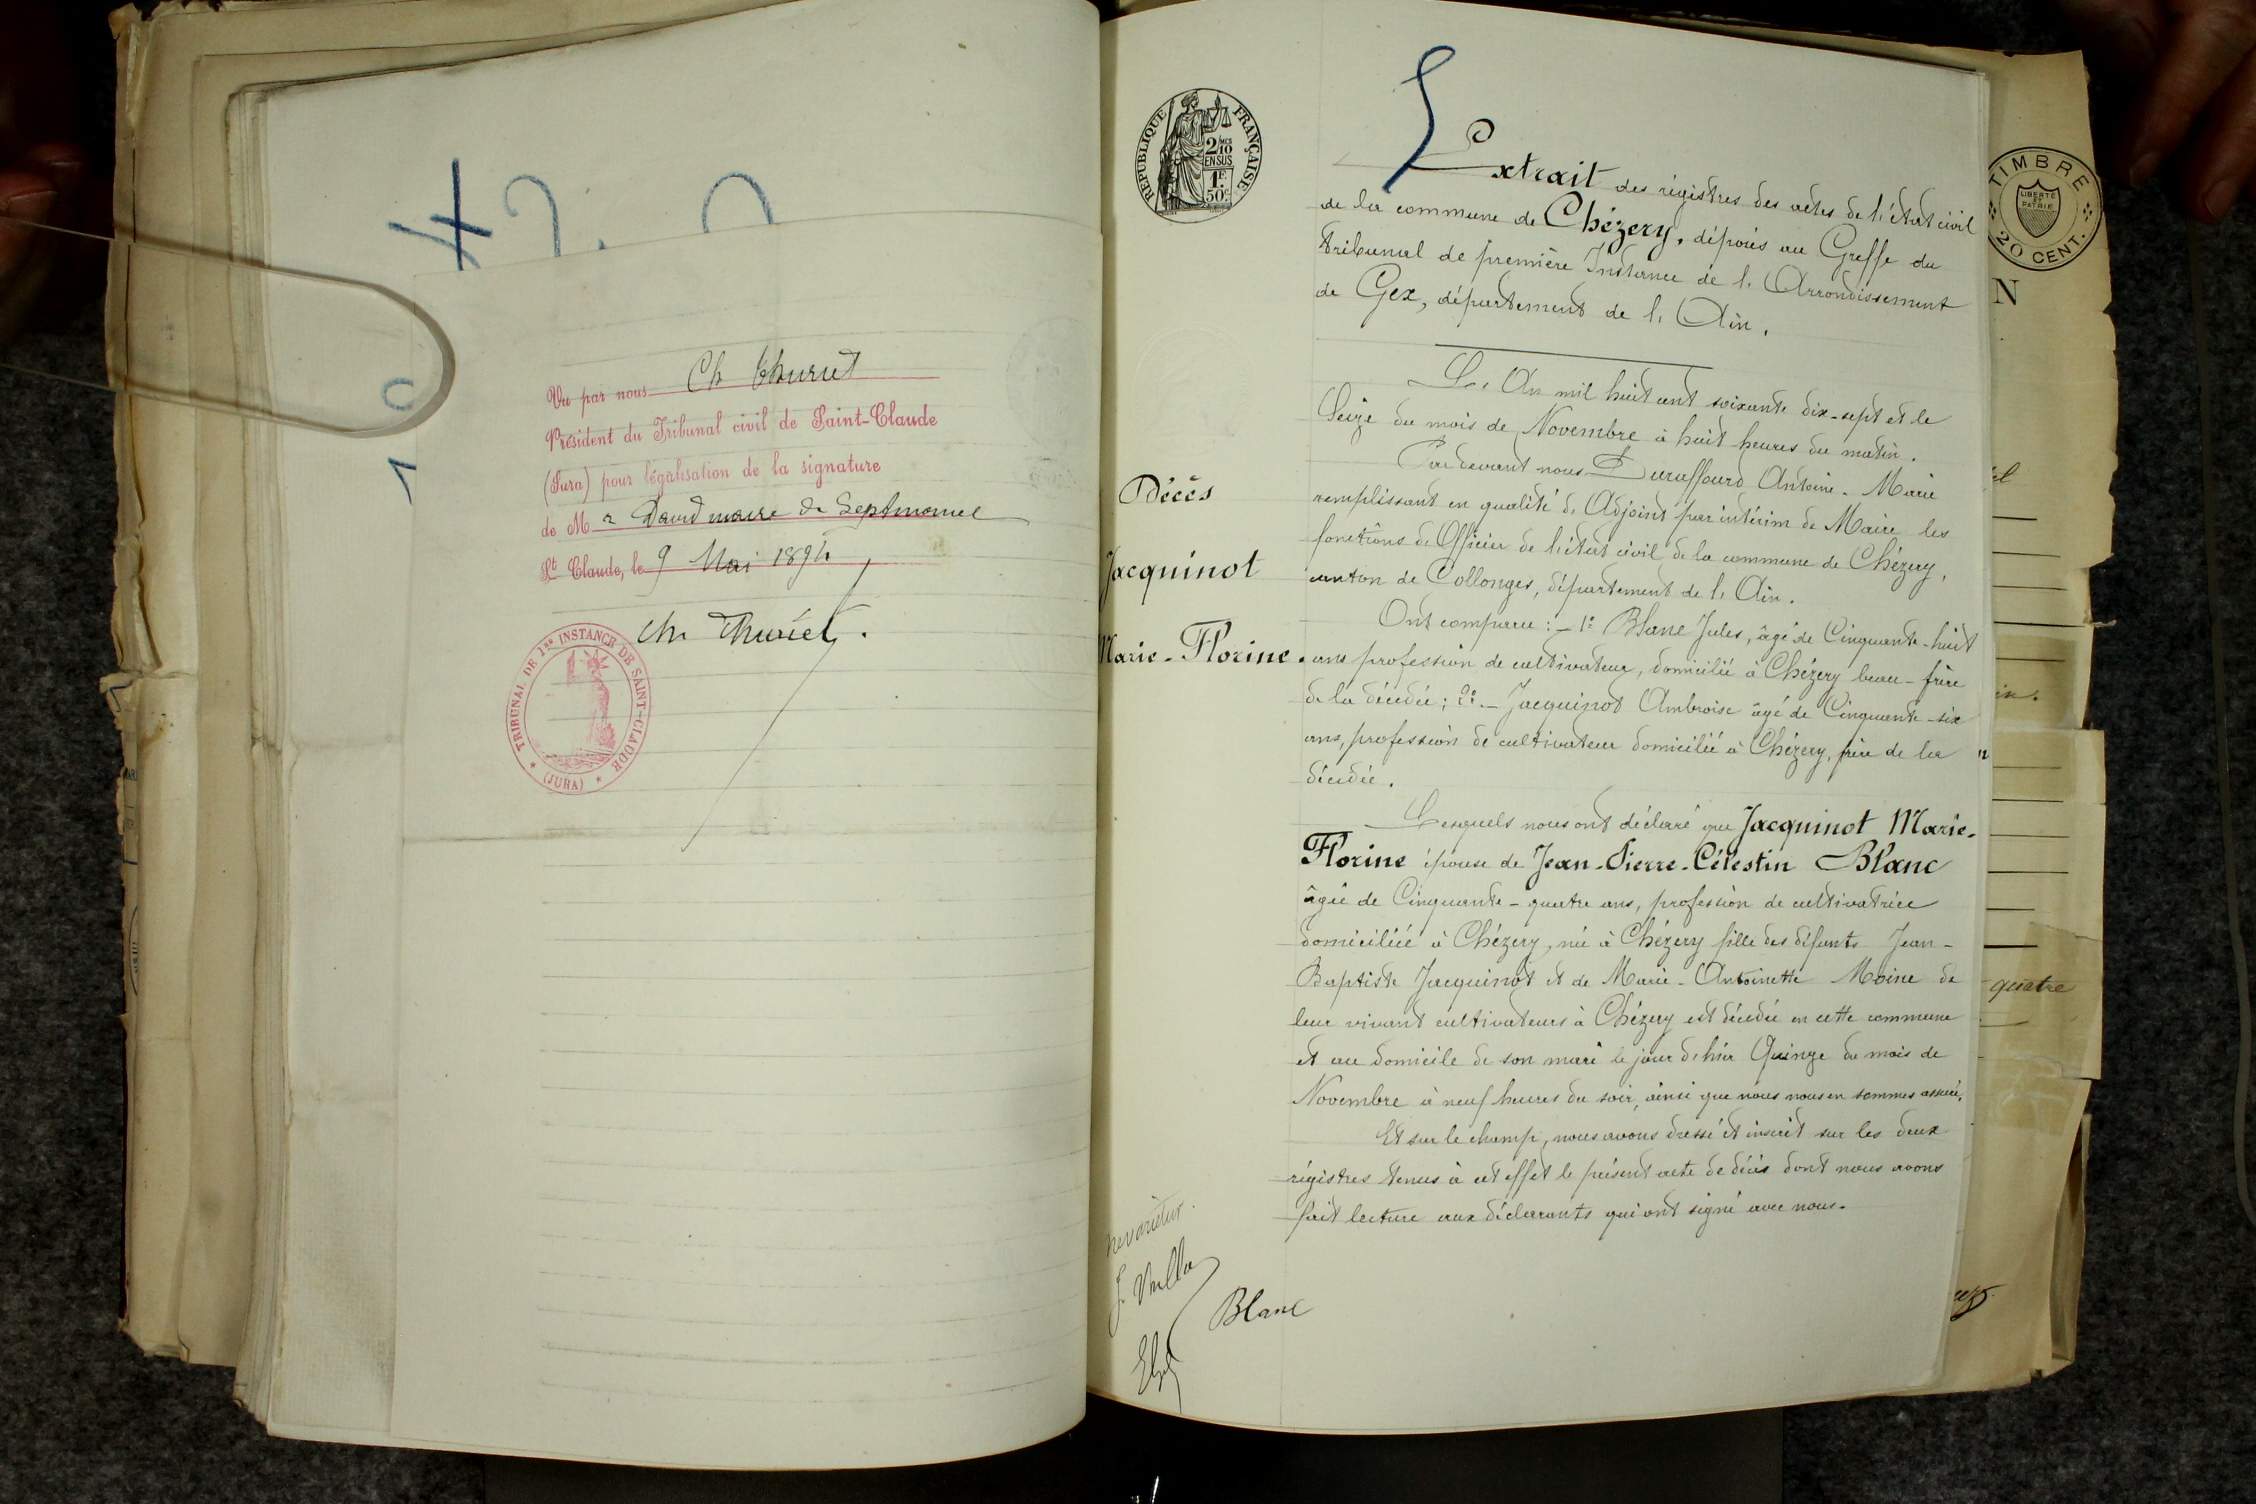 Vu par nous Ch Thuriet
Président du Tribunal civil de Saint-Claude
(Jura) pour légalisation de la signature
de M r David maire de Septmoncel
St Claude, le 9 Mai 1894
Ch. Thuriet.
TRIBUNAL DE 1re INSTANCE DE SAINT-CLAUDE
(JURA)
RÉPUBLIQUE FRANÇAISE
2/10
EN SUS
1F.
50c
Extrait des régistres des actes de l'état civil
de la commune de Chézery, déposés au Greffe du
Tribunal de première Instance de l'Arrondissement
de Gex, département de l'Ain.
L'An mil huit cent soixante dix-sept et le
Seize du mois de Novembre à huit heures du matin.
Par devant nous Duraffourd Antoine-Marie
remplissant en qualité d'Adjoint par intérim de Maire les
fonctions d'Officier de l'état civil de la commune de Chézery,
canton de Collonges, département de l'Ain.
Décès
Jacquinot
Marie-Florine.
Ont comparu: - 1º Blanc Jules, âgé de Cinquante-huit
ans profession de cultivateur, domicilié à Chézery beau-frère
de la décédée; 2º - Jacquinot Ambroise âgé de Cinquante-six
ans, profession de cultivateur domicilié à Chézery, frère de la
décédée.
Lesquels nous ont déclaré que Jacquinot Marie-
Florine épouse de Jean-Pierre-Célestin Blanc
âgée de Cinquante-quatre ans, profession de cultivatrice
domiciliée à Chézery, née à Chézery fille des défunts Jean-
Baptiste Jacquinot et de Marie-Antoinette Moine de
leur vivant cultivateurs à Chézery est décédée en cette commune
et au domicile de son mari le jour d'hier Quinze du mois de
Novembre à neuf heures du soir, ainsi que nous nous en sommes assuré.
Et sur le champ, nous avons dressé et inscrit sur les deux
régistres tenus à cet effet le présent acte de décès dont nous avons
fait lecture aux déclarants qui ont signé avec nous.
ne varietur.
Blanc
TIMBRE
LIBERTÉ
ET
PATRIE
20 CENT.
N
quatre